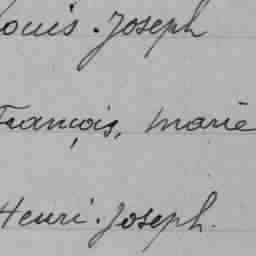 Louis. Joseph
François, Marie
Henri. Joseph.